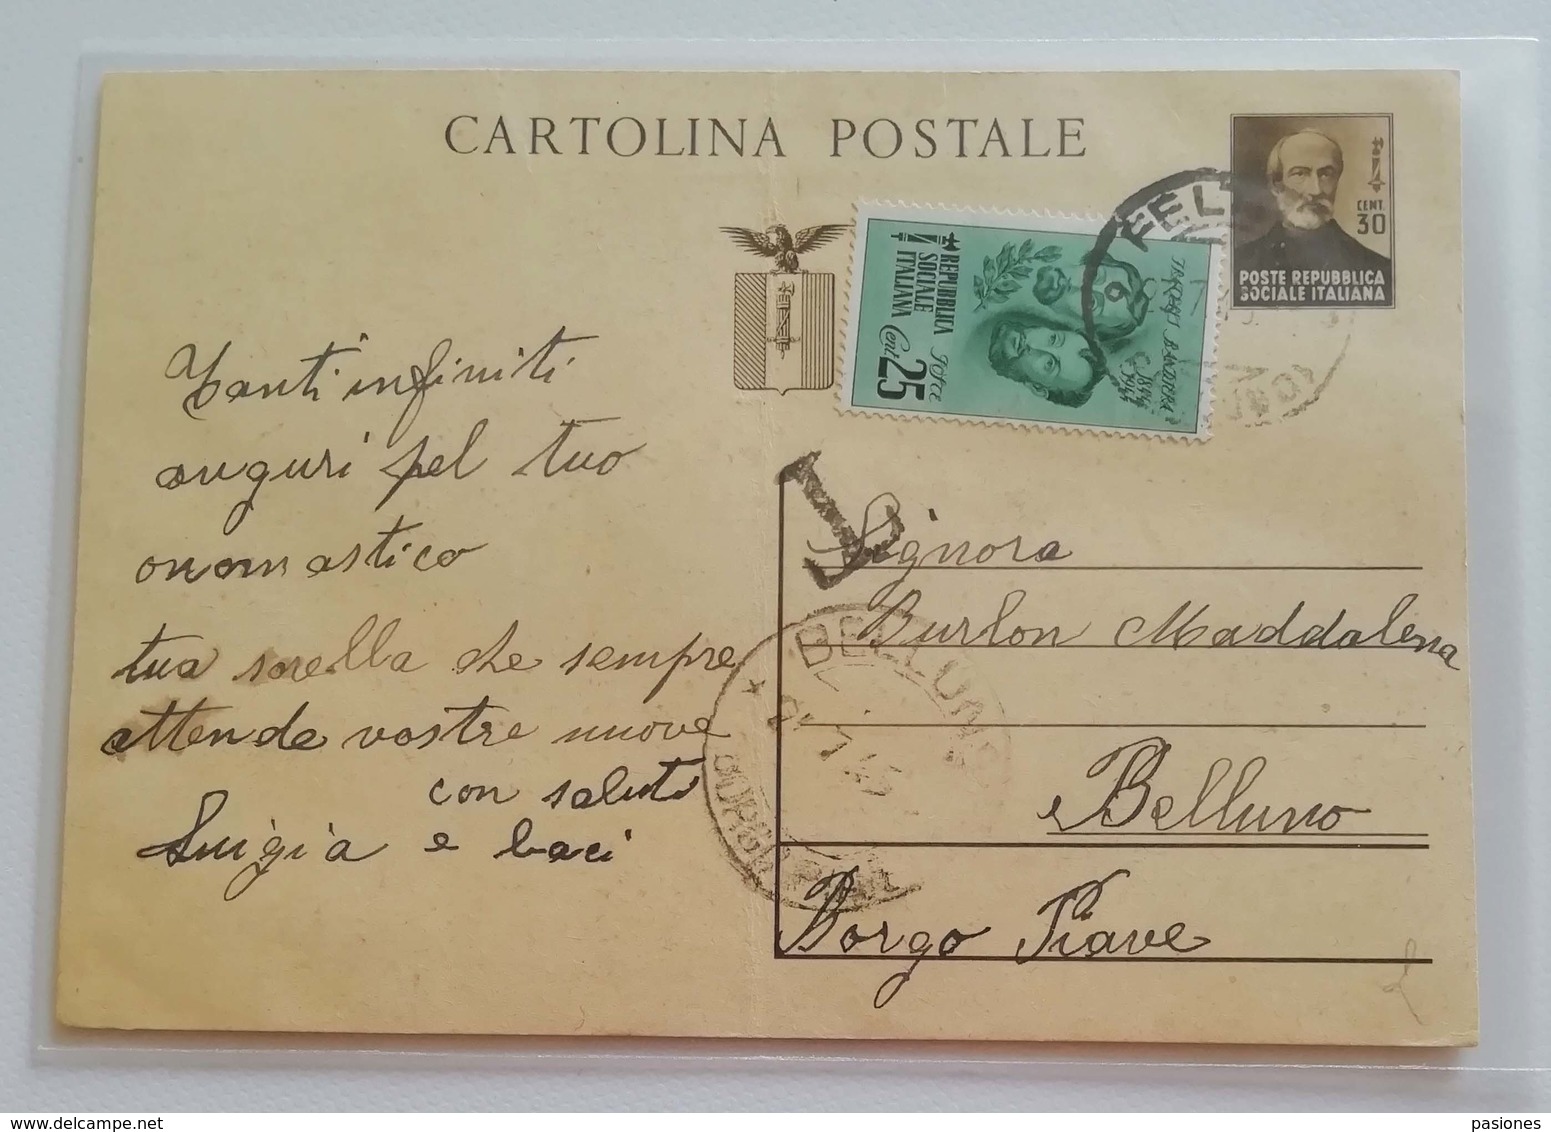 CARTOLINA POSTALE
CENT.
30
POSTE REPUBBLICA
SOCIALE ITALIANA
FELT
REPUBBLICA
SOCIALE
ITALIANA
Poste
Cent. 25
BANDIERA
1844
1944
T
Tanti infiniti
auguri pel tuo
onomastico
tua sorella che sempre
attende vostre nuove
con saluti
Luigia e baci
Signora
Burlon Maddalena
Belluno
Borgo Piave
BELLUNO
7.45
pasiones